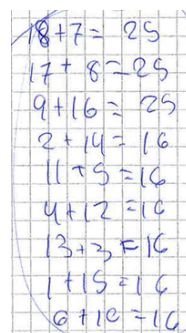 18+7= 25
17+8=25
9+16= 25
2+14= 16
11+5=16
4+12=16
13+3=16
1+15=16
6+10=16